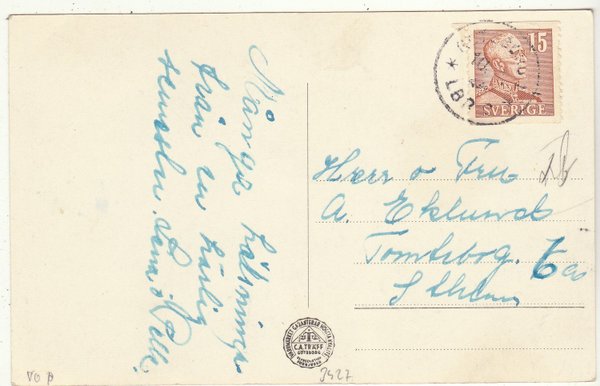 Många hälsningar
från en härlig
semester. Lena o Kalle.
15
SVERIGE
LBR
Herr o Fru
A. Eklund
Tomtebog. 6
Sthlm
C.A. TRÄFF
GÖTEBORG
3427